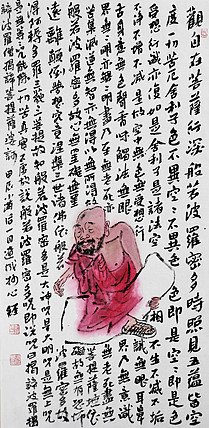 觀自在菩薩行深般若波羅密多時照見五蘊皆空
度一切苦厄舍利子色不異空空不異色色即是空空即是色
受想行識亦復如是舍利子是諸法空相不生不滅不垢
不淨不增不減是故空中無色無受想行識無眼耳鼻
舌身意無色聲香味觸法無眼界乃至無意識
界無無明亦無無明盡乃至無老死亦無老死盡無
苦集滅道無智亦無得以無所得故菩提薩埵依
般若波羅密多故心無罣礙無罣礙故無有恐怖
遠離顛倒夢想究竟涅槃三世諸佛依般若波羅密多故
得阿耨多羅三藐三菩提故知般若波羅密多是大神咒是大明咒是無上咒
是無等等咒能除一切苦真實不虛故說般若波羅密多咒即說咒曰揭諦揭諦
波羅揭諦波羅僧揭諦菩提薩婆訶
心經